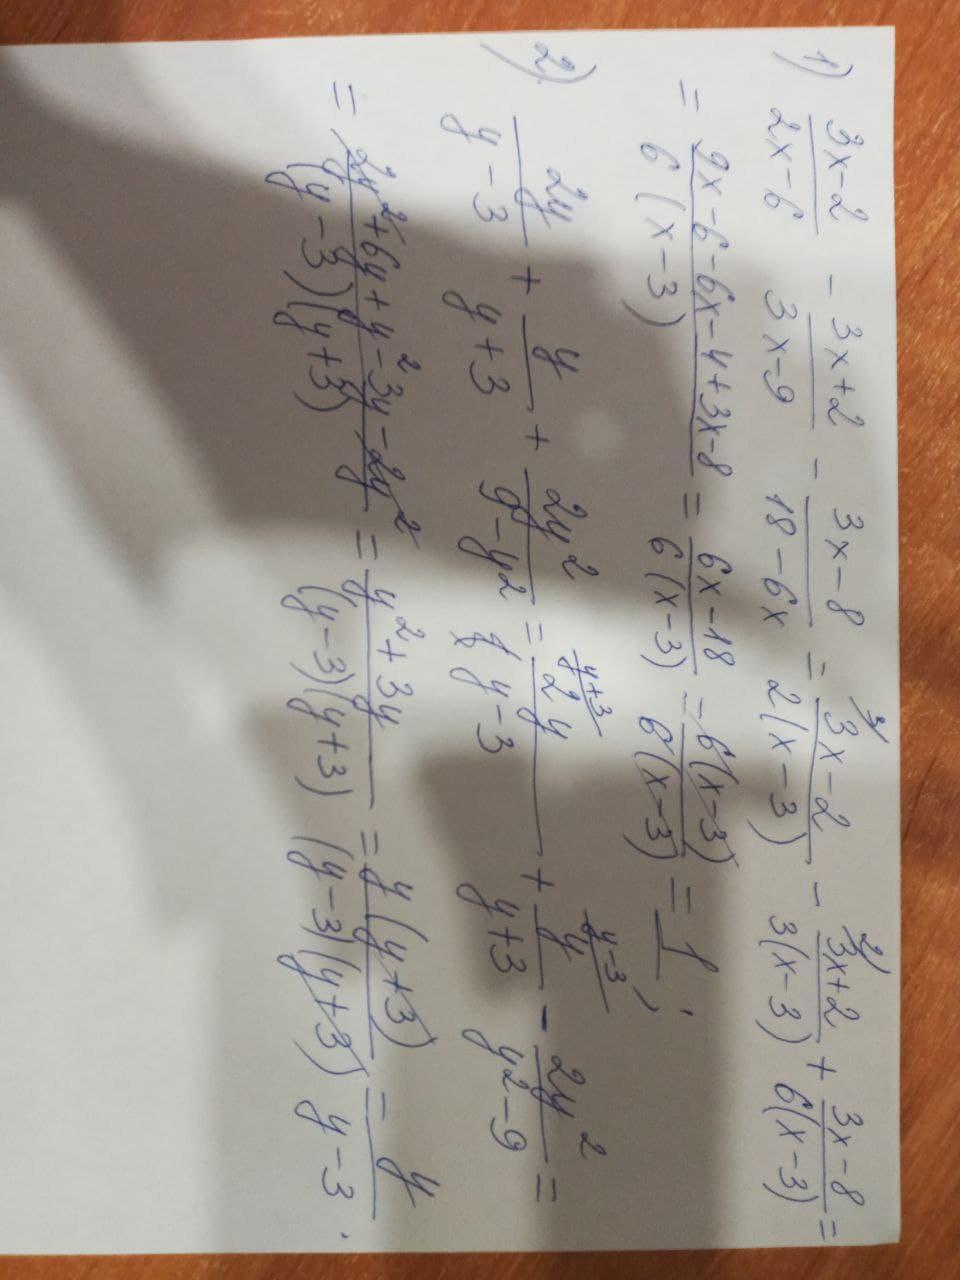 1) (3x-2)/(2x-6) - (3x+2)/(3x-9) - (3x-8)/(18-6x) = (3x-2)/(2(x-3)) 3/ - (3x+2)/(3(x-3)) 2/ + (3x-8)/(6(x-3)) =
= (9x-6-6x-4+3x-8)/(6(x-3)) = (6x-18)/(6(x-3)) = (6(x-3))/(6(x-3)) = 1;
2) 2y/(y-3) + y/(y+3) + 2y²/(9-y²) = 2y/(y-3) y+3/ + y/(y+3) y-3/ - 2y²/(y²-9) =
= (2y²+6y+y²-3y-2y²)/((y-3)(y+3)) = (y²+3y)/((y-3)(y+3)) = (y(y+3))/((y-3)(y+3)) = y/(y-3).